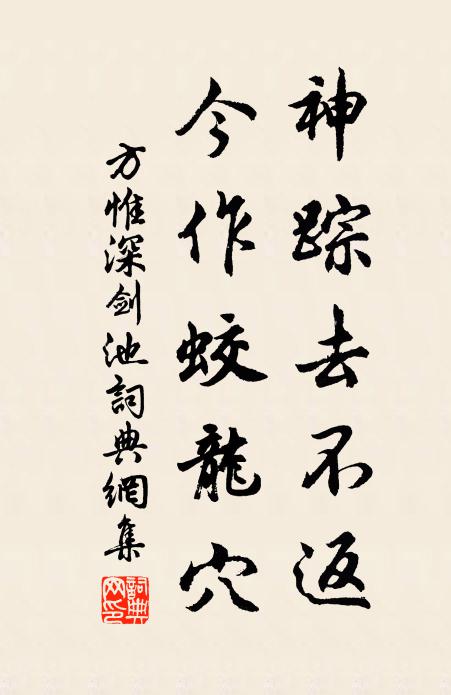 神踪去不返
今作蛟龍穴
方惟深剑池詞典網集
詞典網印